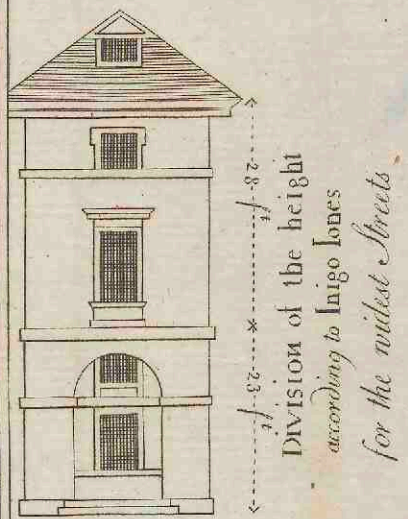 28 ft
23 ft
Division of the height
according to Inigo Iones
for the widest Streets